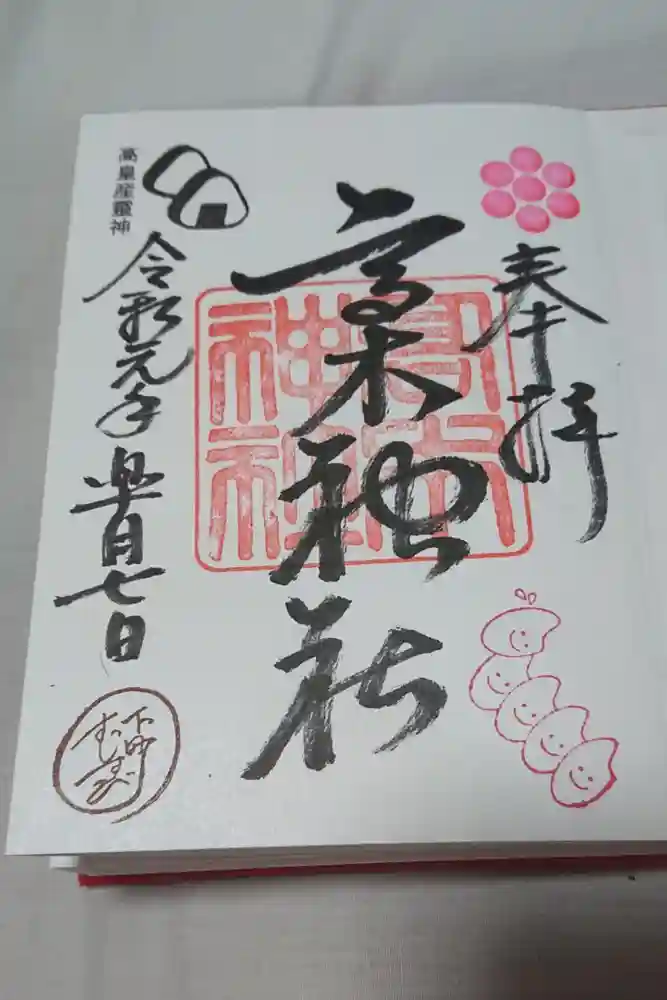 奉拝
高木神社
高木
神社
高皇産靈神
令和元年 月七日
下町
むすび